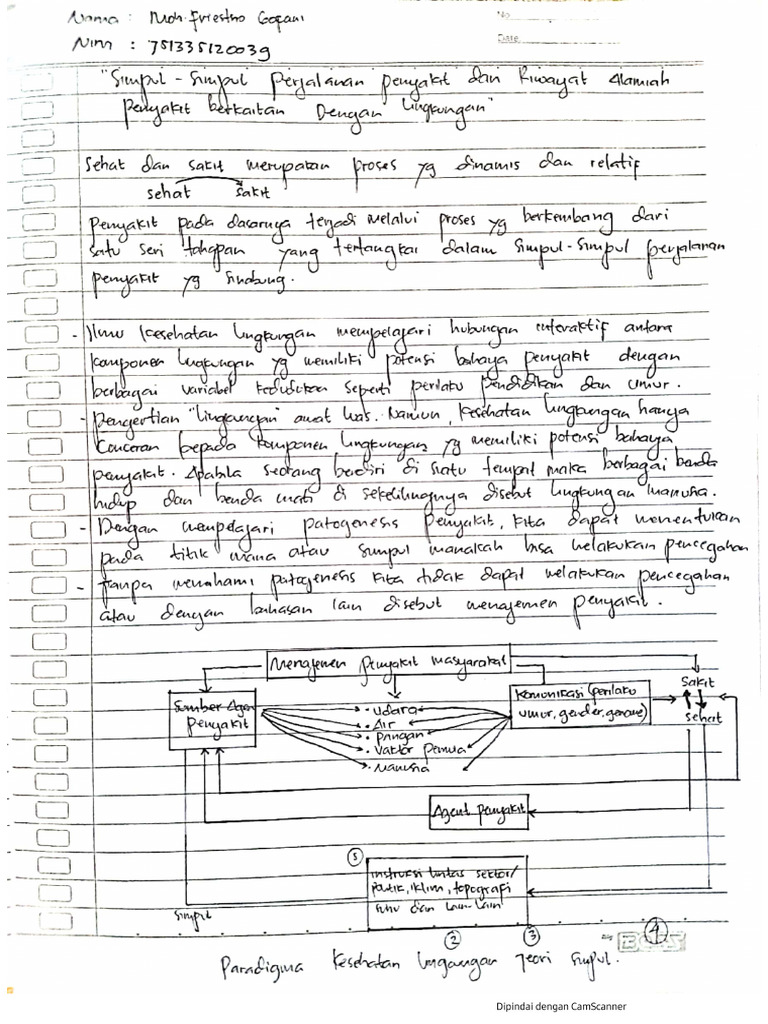 Nama : Moh. Friestno Gopani
No.
Nim : 751335120039
Date.
"Simpul-Simpul Perjalanan penyakit dan Riwayat Alamiah
Penyakit berkaitan Dengan Lingkungan"
Sehat dan sakit merupakan proses yg dinamis dan relatif
sehat sakit
Penyakit pada dasarnya terjadi melalui proses yg berkembang dari
satu seri tahapan yang tertangkai dalam simpul-simpul perjalanan
penyakit yg
- Ilmu kesehatan lingkungan mempelajari hubungan interaktif antara
komponen lingkungan yg memiliki potensi bahaya penyakit dengan
berbagai variabel kedudukan seperti perilaku pendidikan dan umur.
- pengertian "lingkungan" amat luas. Namun, kesehatan lingkungan hanya
konceran kepada komponen lingkungan yg memiliki potensi bahaya
penyakit. Apabila seorang berdiri di suatu tempat maka berbagai benda
hidup dan benda mati di sekelilingnya disebut lingkungan manusia.
- Dengan mempelajari patogenesis penyakit, kita dapat menentukan
pada titik mana atau simpul manakah bisa melakukan pencegahan
- tanpa memahami patogenesis kita tidak dapat melakukan pencegahan
atau dengan bahasan lain disebut menajemen penyakit.
Menajemen penyakit masyarakat
Sumber Agen
Penyakit
• udara
• Air
• pangan
• Vaktor
• Manusia
Komunikasi (perilaku
umur, gender, )
Sakit
sehat
Agent penyakit
5
instruksi lintas sektor/
politik, iklim, topografi
suhu dan lain-lain
simpul
2
3
4
BOSS
Paradigma Kesehatan lingkungan Teori simpul.
Dipindai dengan CamScanner